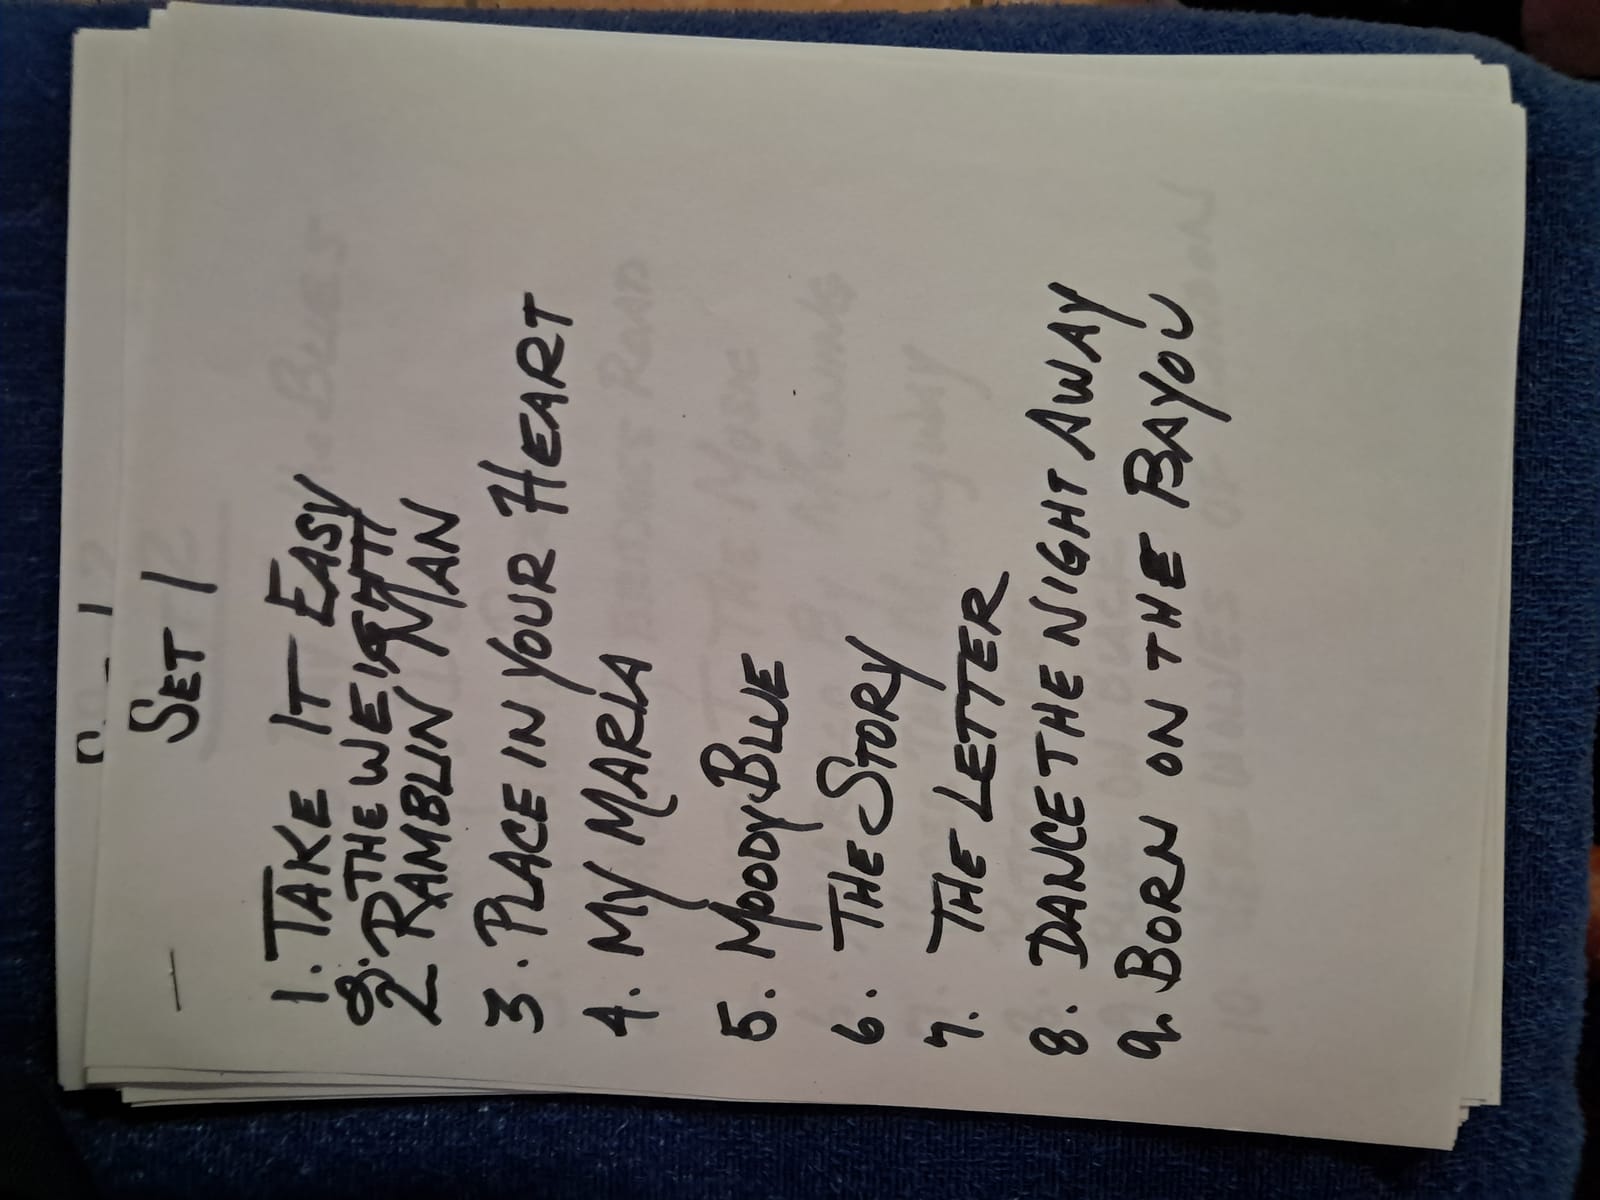 SET 1
1. TAKE IT EASY
THE WEIGHT
2 RAMBLIN MAN
3. PLACE IN YOUR HEART
4. MY MARIA
5. MOODY BLUE
6. THE STORY
7. THE LETTER
8. DANCE THE NIGHT AWAY
9. BORN ON THE BAYOU